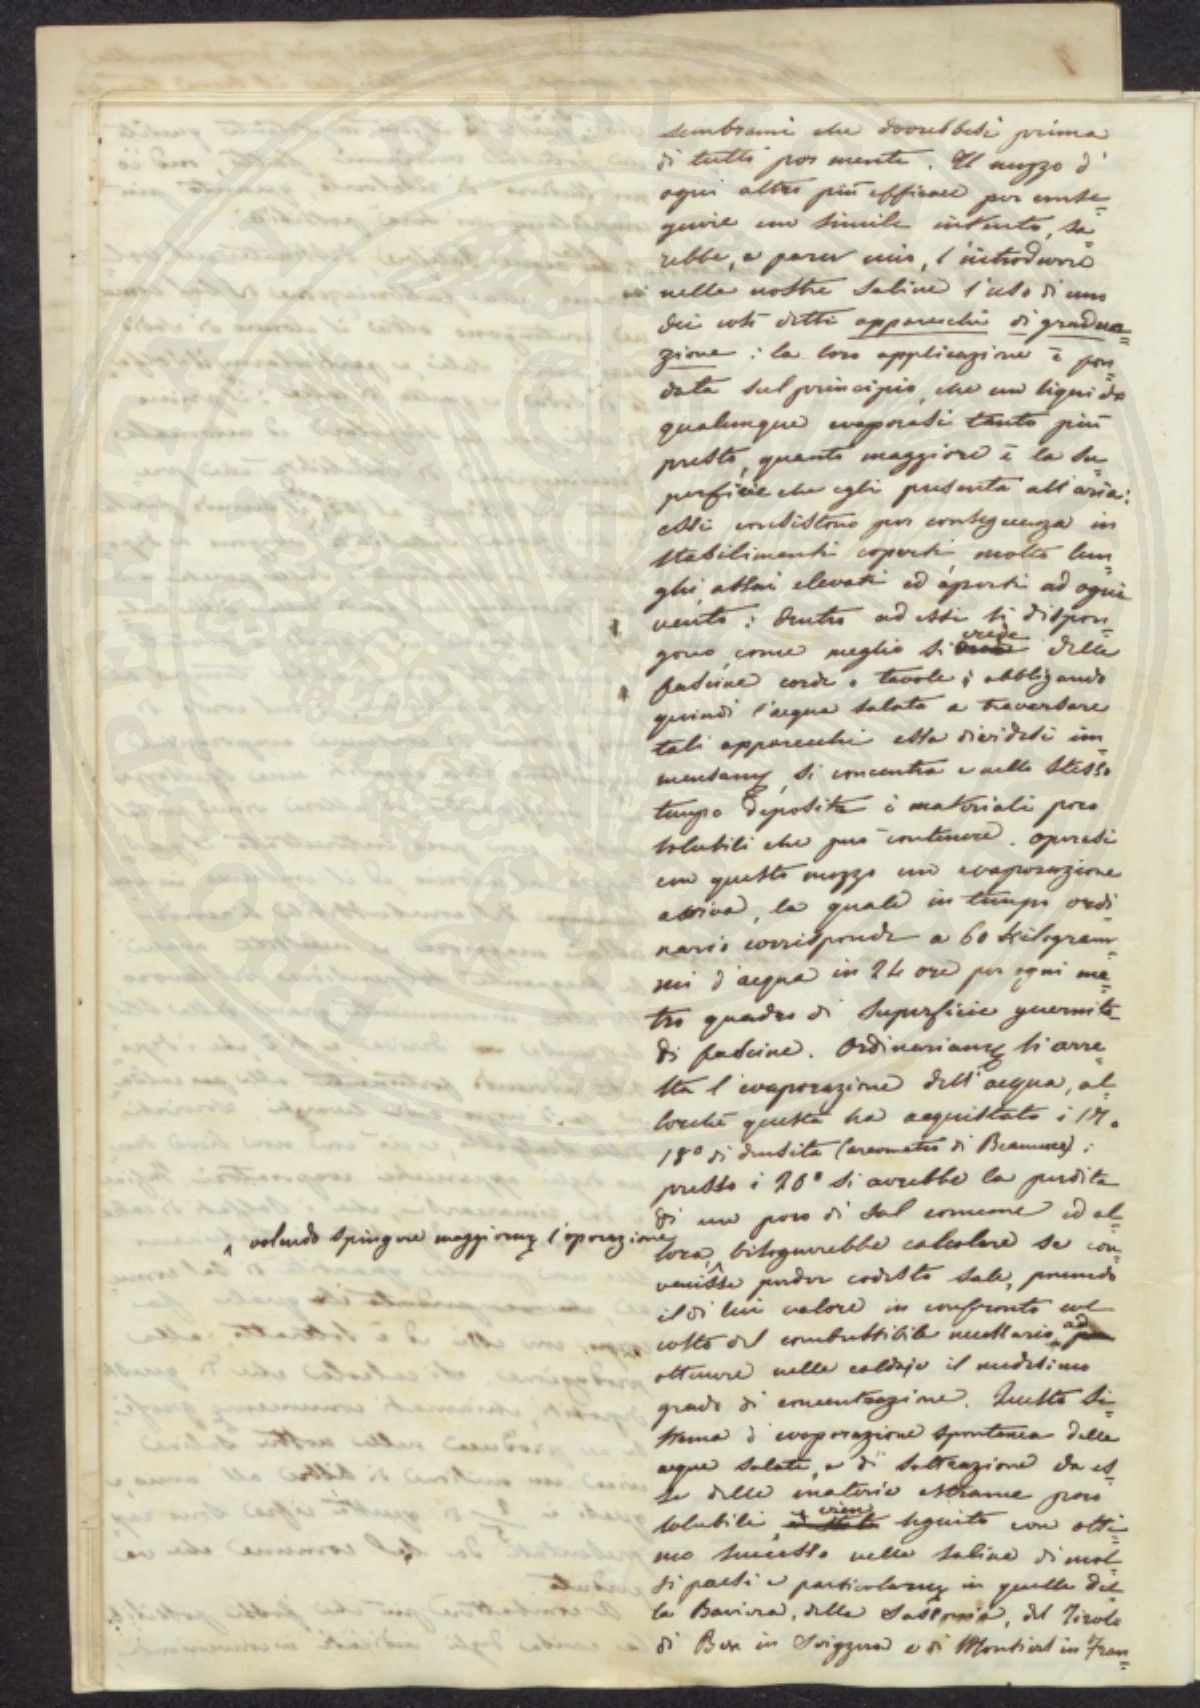 sembrami che dovrebbesi prima
di tutti por mente. Il mezzo d'
ogni altro più efficace per conse=
guire un simile intento, sa=
rebbe, a parer mio, l'introdurre
nelle nostre saline l'uso di uno
dei così detti apparecchi di gradua=
zione: la loro applicazione è fon=
data sul principio, che un liquido
qualunque evaporasi tanto più
presto, quanto maggiore è la su=
perficie che egli presenta all'aria:
essi consistono per conseguenza in
stabilimenti coperti, molto lun=
ghi, assai elevati ed aperti ad ogni
vento: dentro ad essi si dispon=
gono, come meglio si crede delle
fascine corde o tavole; obbligando
quindi l'acqua salata a traversare
tali apparecchi essa dividesi im=
mensam.e, si concentra e nello stesso
tempo deposita i materiali poco
solubili che può contenere. Operasi
con questo mezzo un evaporazione
attiva, la quale in tempi ordi=
nario corrisponde a 60 Kilogram=
mi d'acqua in 24 ore per ogni me=
tro quadro di superficie guernita
di fascine. Ordinariam.e si arre=
sta l'evaporazione dell'acqua, al=
lorché questa ha acquistato i 17.
18° di densità (areometro di Beaumé):
presso i 20° si avrebbe la perdita
di un poco di sal comune ed al=
^ volendo spingere maggiorm.e l'operazione
lora, bisognerebbe calcolare se con=
venisse perder codesto sale, ponendo
il di lui valore in confronto col
costo del combustibile necessario ad
ottenere nelle caldaje il medesimo
grado di concentrazione. Questo Si=
stema d'evaporazione spontanea delle
acque salate, e di sottrazione da es=
se delle materie estranee poco
solubili, è vien seguito con otti=
mo successo nelle saline di mol=
ti paesi e particolarm.e in quelle del=
la Baviera, della Sassonia, del Tirolo
di Bex in Svizzera e di Montiers in Fran=